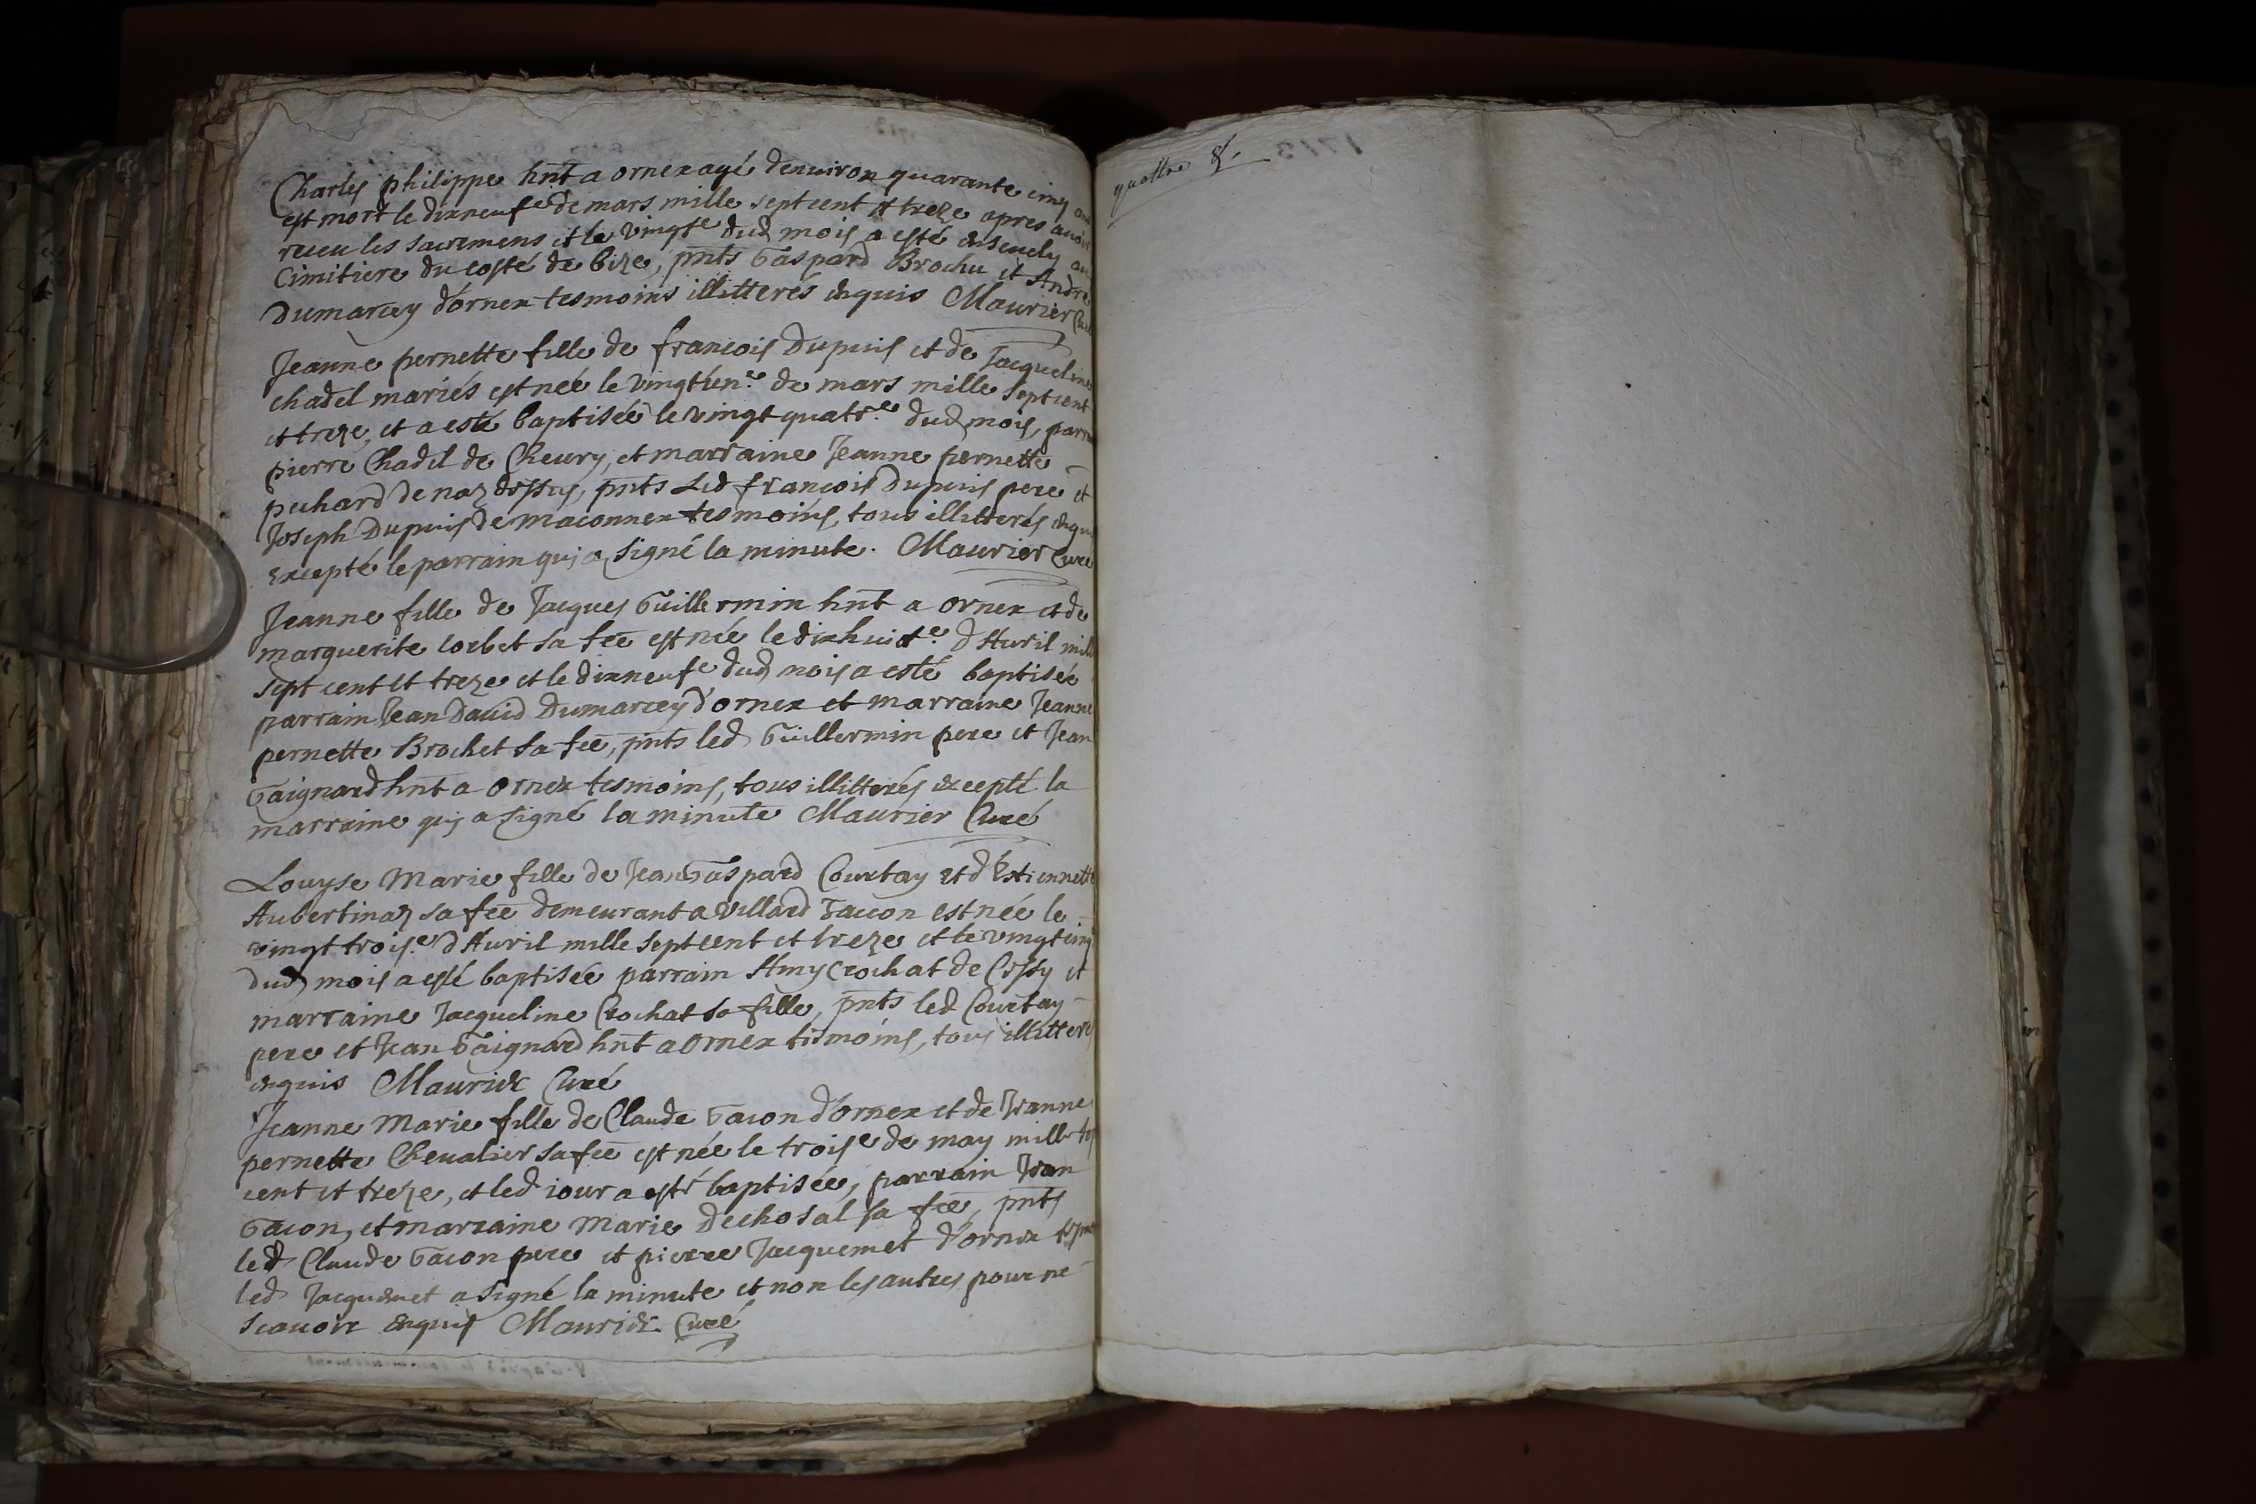 Charles philippe hñt a ornex agé denuiron quarante cinq ans
est mort le dixneufe de mars mille septcent et treze apres auoir
receu les sacremens et le vingte dud mois a esté enseuely au
Cimitiere du costé de bize, pñts Gaspard Brochu et André
Dumarcey d'ornex tesmoins illitterés enquis Maurier Curé
Jeanne pernette fille de francois Dupuis et de Jacqueline
chadel mariés est née le vingtién.e de mars mille septcent
et treze, et a esté baptisée le vingt quatr.e dud mois, parrain
pierre Chadel de Cheury, et marraine Jeanne pernette
puhard de naz dessus, pñts Led francois Dupuis pere et
Joseph Dupuis de maconnex tesmoins, tous illitterés enquis
Excepté le parrain quj a signé la minute. Maurier Curé
Jeanne fille de Jacques Guillermin hñt a ornex et de
marguerite corbet sa fee est née le dixhuict.e d'Auril mille
sept cent et treze et le dixneufe dud mois a esté baptisée
parrain Jean Dauid Dumarcey d'ornex et marraine Jeanne
pernette Brochet sa fee, pñts led Guillermin pere et Jean
Gaignard hñt a ornex tesmoins, tous illitterés excepté la
marraine quj a signé la minute Maurier Curé
Louyse Marie fille de Jean Gaspard Courtay et d'Estiennette
Aubertinaz sa fee demeurant a villard Taccon est née le
vingt trois.e d'Auril mille septcent et treze et le vingt cinq
dud mois a esté baptisée parrain Amy Crochat de Cessy et
marraine Jacqueline Crochat sa fille, pñts led Courtay
pere et Jean Gaignard hñt a ornex tesmoins, tous illitterés
enquis Maurier Curé
Jeanne Marie fille de Claude Gacon d'ornex et de Jeanne
pernette Cheualier sa fee est née le troise de may mille sept
cent et treze, et led iour a esté baptisée, parrain Jean
Gacon, et marraine Marie Dechosal sa fee, pñts
led Claude Gacon pere et pierre Jacquemet d'ornex tesmoins
led Jacquemet a signé la minute et non les autres pour ne
scauoir enquis Maurier Curé
quattre &.
1713